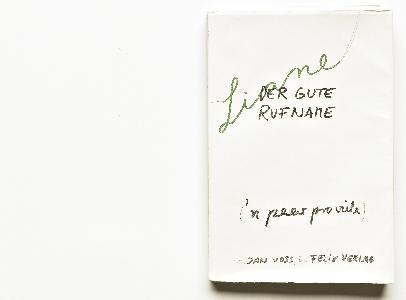 Liane
DER GUTE
RUFNAME
('n paar
JAN VOSS, FELIX VERLAG